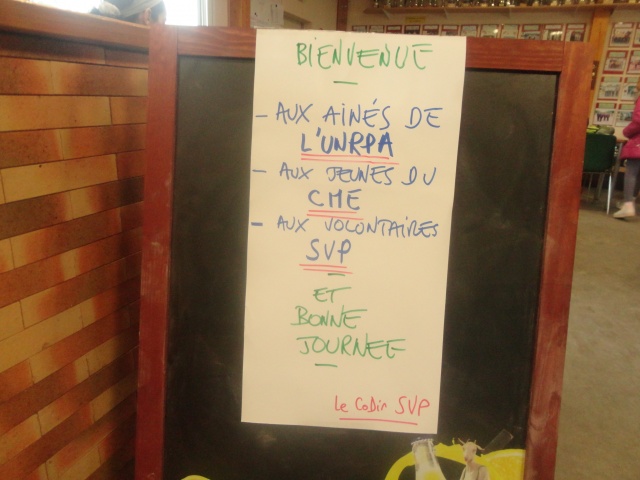 BIENVENUE
- AUX AINÉS DE
L'UNRPA
- AUX JEUNES DU
CME
- AUX VOLONTAIRES
SVP
ET
BONNE
JOURNEE
Le CoDir SVP